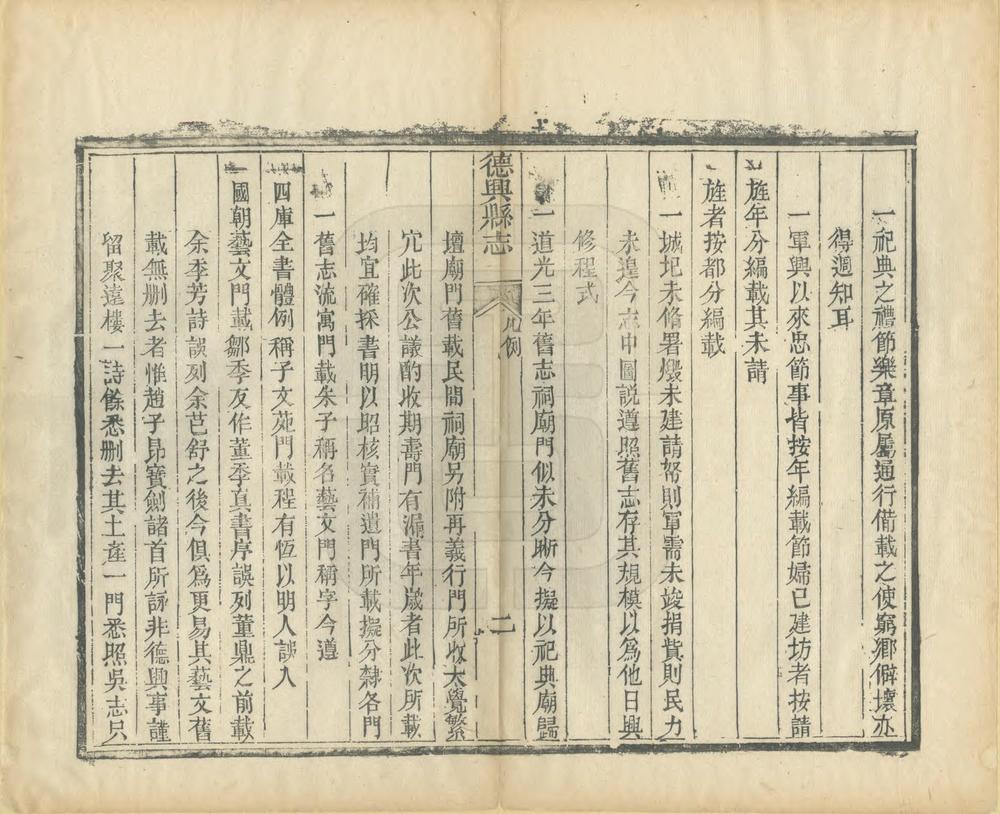 一祀典之禮節樂章原屬通行備載之使窮鄉僻壤亦
得週知耳
一軍興以來忠節事皆按年編載節婦已建坊者按請
旌年分編載其未請
旌者按都分編載
一城圯未脩署燬未建請帑則軍需未竣捐貲則民力
未遑今志中圖説遵照舊志存其規模以爲他日興
修程式
一道光三年舊志祠廟門似未分晰今擬以祀典廟歸
德興縣志
凡例
二
壇廟門舊載民間祠廟另附再義行門所收太覺繁
冗此次公議酌收期壽門有漏書年嵗者此次所載
均宜確採書明以昭核實補遺門所載擬分隸各門
一舊志流寓門載朱子稱名藝文門稱字今遵
四庫全書體例稱子文苑門載程有恆以明人誤入
國朝藝文門載鄒季友作董季真書序誤列董鼎之前載
余季芳詩誤列余芑舒之後今俱爲更易其藝文舊
載無刪去者惟趙子昻寶劍諸首所詠非德興事謹
留聚遠樓一詩餘悉刪去其土產一門悉照吳志只